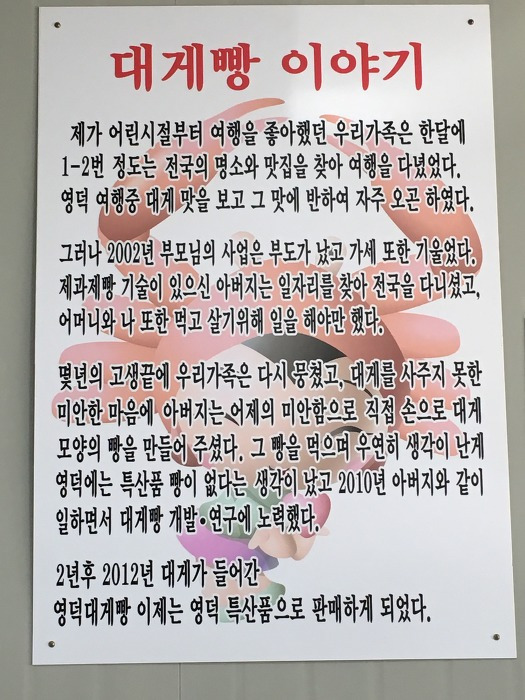 대게빵 이야기
제가 어린시절부터 여행을 좋아했던 우리가족은 한달에
1-2번 정도는 전국의 명소와 맛집을 찾아 여행을 다녔었다.
영덕 여행중 대게 맛을 보고 그 맛에 반하여 자주 오곤 하였다.
그러나 2002년 부모님의 사업은 부도가 났고 가세 또한 기울었다.
제과제빵 기술이 있으신 아버지는 일자리를 찾아 전국을 다니셨고,
어머니와 나 또한 먹고 살기위해 일을 해야만 했다.
몇년의 고생끝에 우리가족은 다시 뭉쳤고, 대게를 사주지 못한
미안한 마음에 아버지는 어제의 미안함으로 직접 손으로 대게
모양의 빵을 만들어 주셨다. 그 빵을 먹으며 우연히 생각이 난게
영덕에는 특산품 빵이 없다는 생각이 났고 2010년 아버지와 같이
일하면서 대게빵 개발·연구에 노력했다.
2년후 2012년 대게가 들어간
영덕대게빵 이제는 영덕 특산품으로 판매하게 되었다.